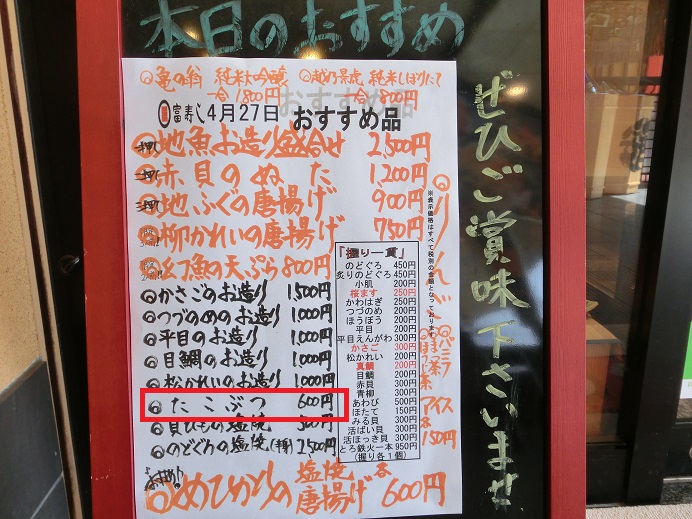 本日のおすすめ
◎亀の翁 純米大吟醸 一合1,800円
◎越乃景虎 純米しぼりたて 一合800円
富寿し4月27日 おすすめ品
◎地魚お造り盛合せ 2,500円
◎赤貝のぬた 1,200円
◎地ふぐの唐揚げ 900円
◎柳かれいの唐揚げ 750円
◎幻魚の天ぷら 800円
◎かさごのお造り 1,500円
◎つづのめのお造り 1,000円
◎平目のお造り 1,000円
◎目鯛のお造り 1,000円
◎松かれいのお造り 1,000円
◎たこぶつ 600円
◎貝ひもの塩焼 500円
◎のどぐろの塩焼(半身) 2,500円
◎めひかりの 塩焼 唐揚げ 各 600円
「握り一貫」
のどぐろ 450円
炙りのどぐろ 450円
小肌 200円
桜ます 250円
かわはぎ 250円
つづのめ 200円
ほうぼう 200円
平目 200円
平目えんがわ 300円
かさご 300円
松かれい 200円
真鯛 200円
目鯛 200円
赤貝 300円
青柳 300円
あわび 500円
ほたて 150円
みる貝 300円
活ばい貝 300円
活ほっき貝 300円
とろ鉄火一本 950円
(握り各1個)
※表示価格はすべて税別の金額となっております。
◎りんご
◎バニラ
◎ほうじ茶
アイス
各150円
ぜひご賞味下さいませ